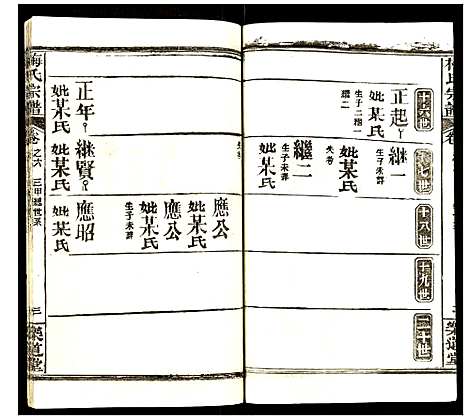 十六世
十七世
十八世
十九世
二十世
正起
妣某氏
生子二繼一
繼二
繼一
妣某氏
失考
生子未詳
繼二
妣某氏
生子未詳
失考
應公
妣某氏
應公
妣某氏
生子未詳
正年
妣某氏
繼賢
妣某氏
應昭
妣某氏
梅氏宗譜
卷之六
三甲遜世系
三
樂道堂
樂道堂